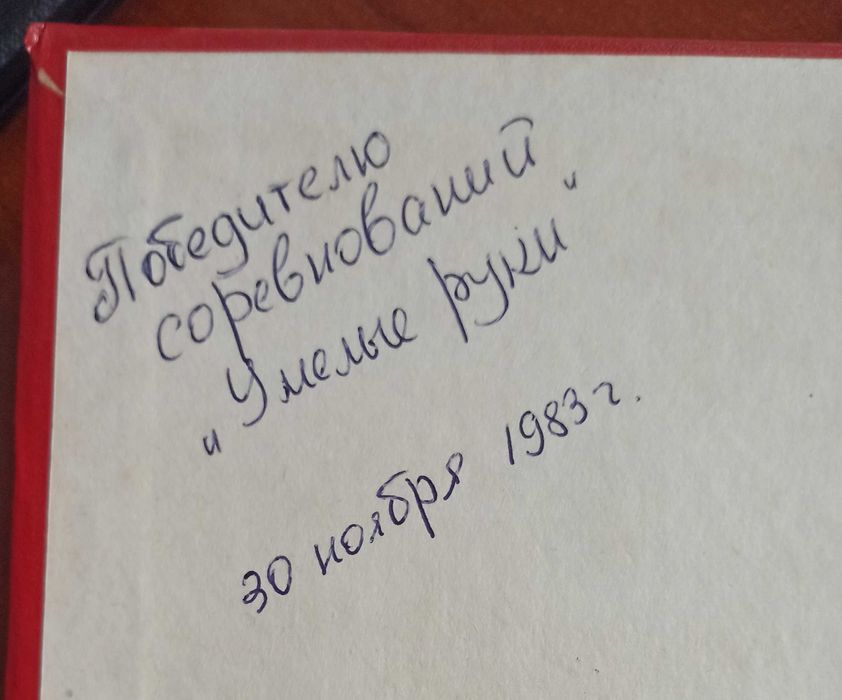 Победителю
соревнований
„Умелые руки"
30 ноября 1983 г.